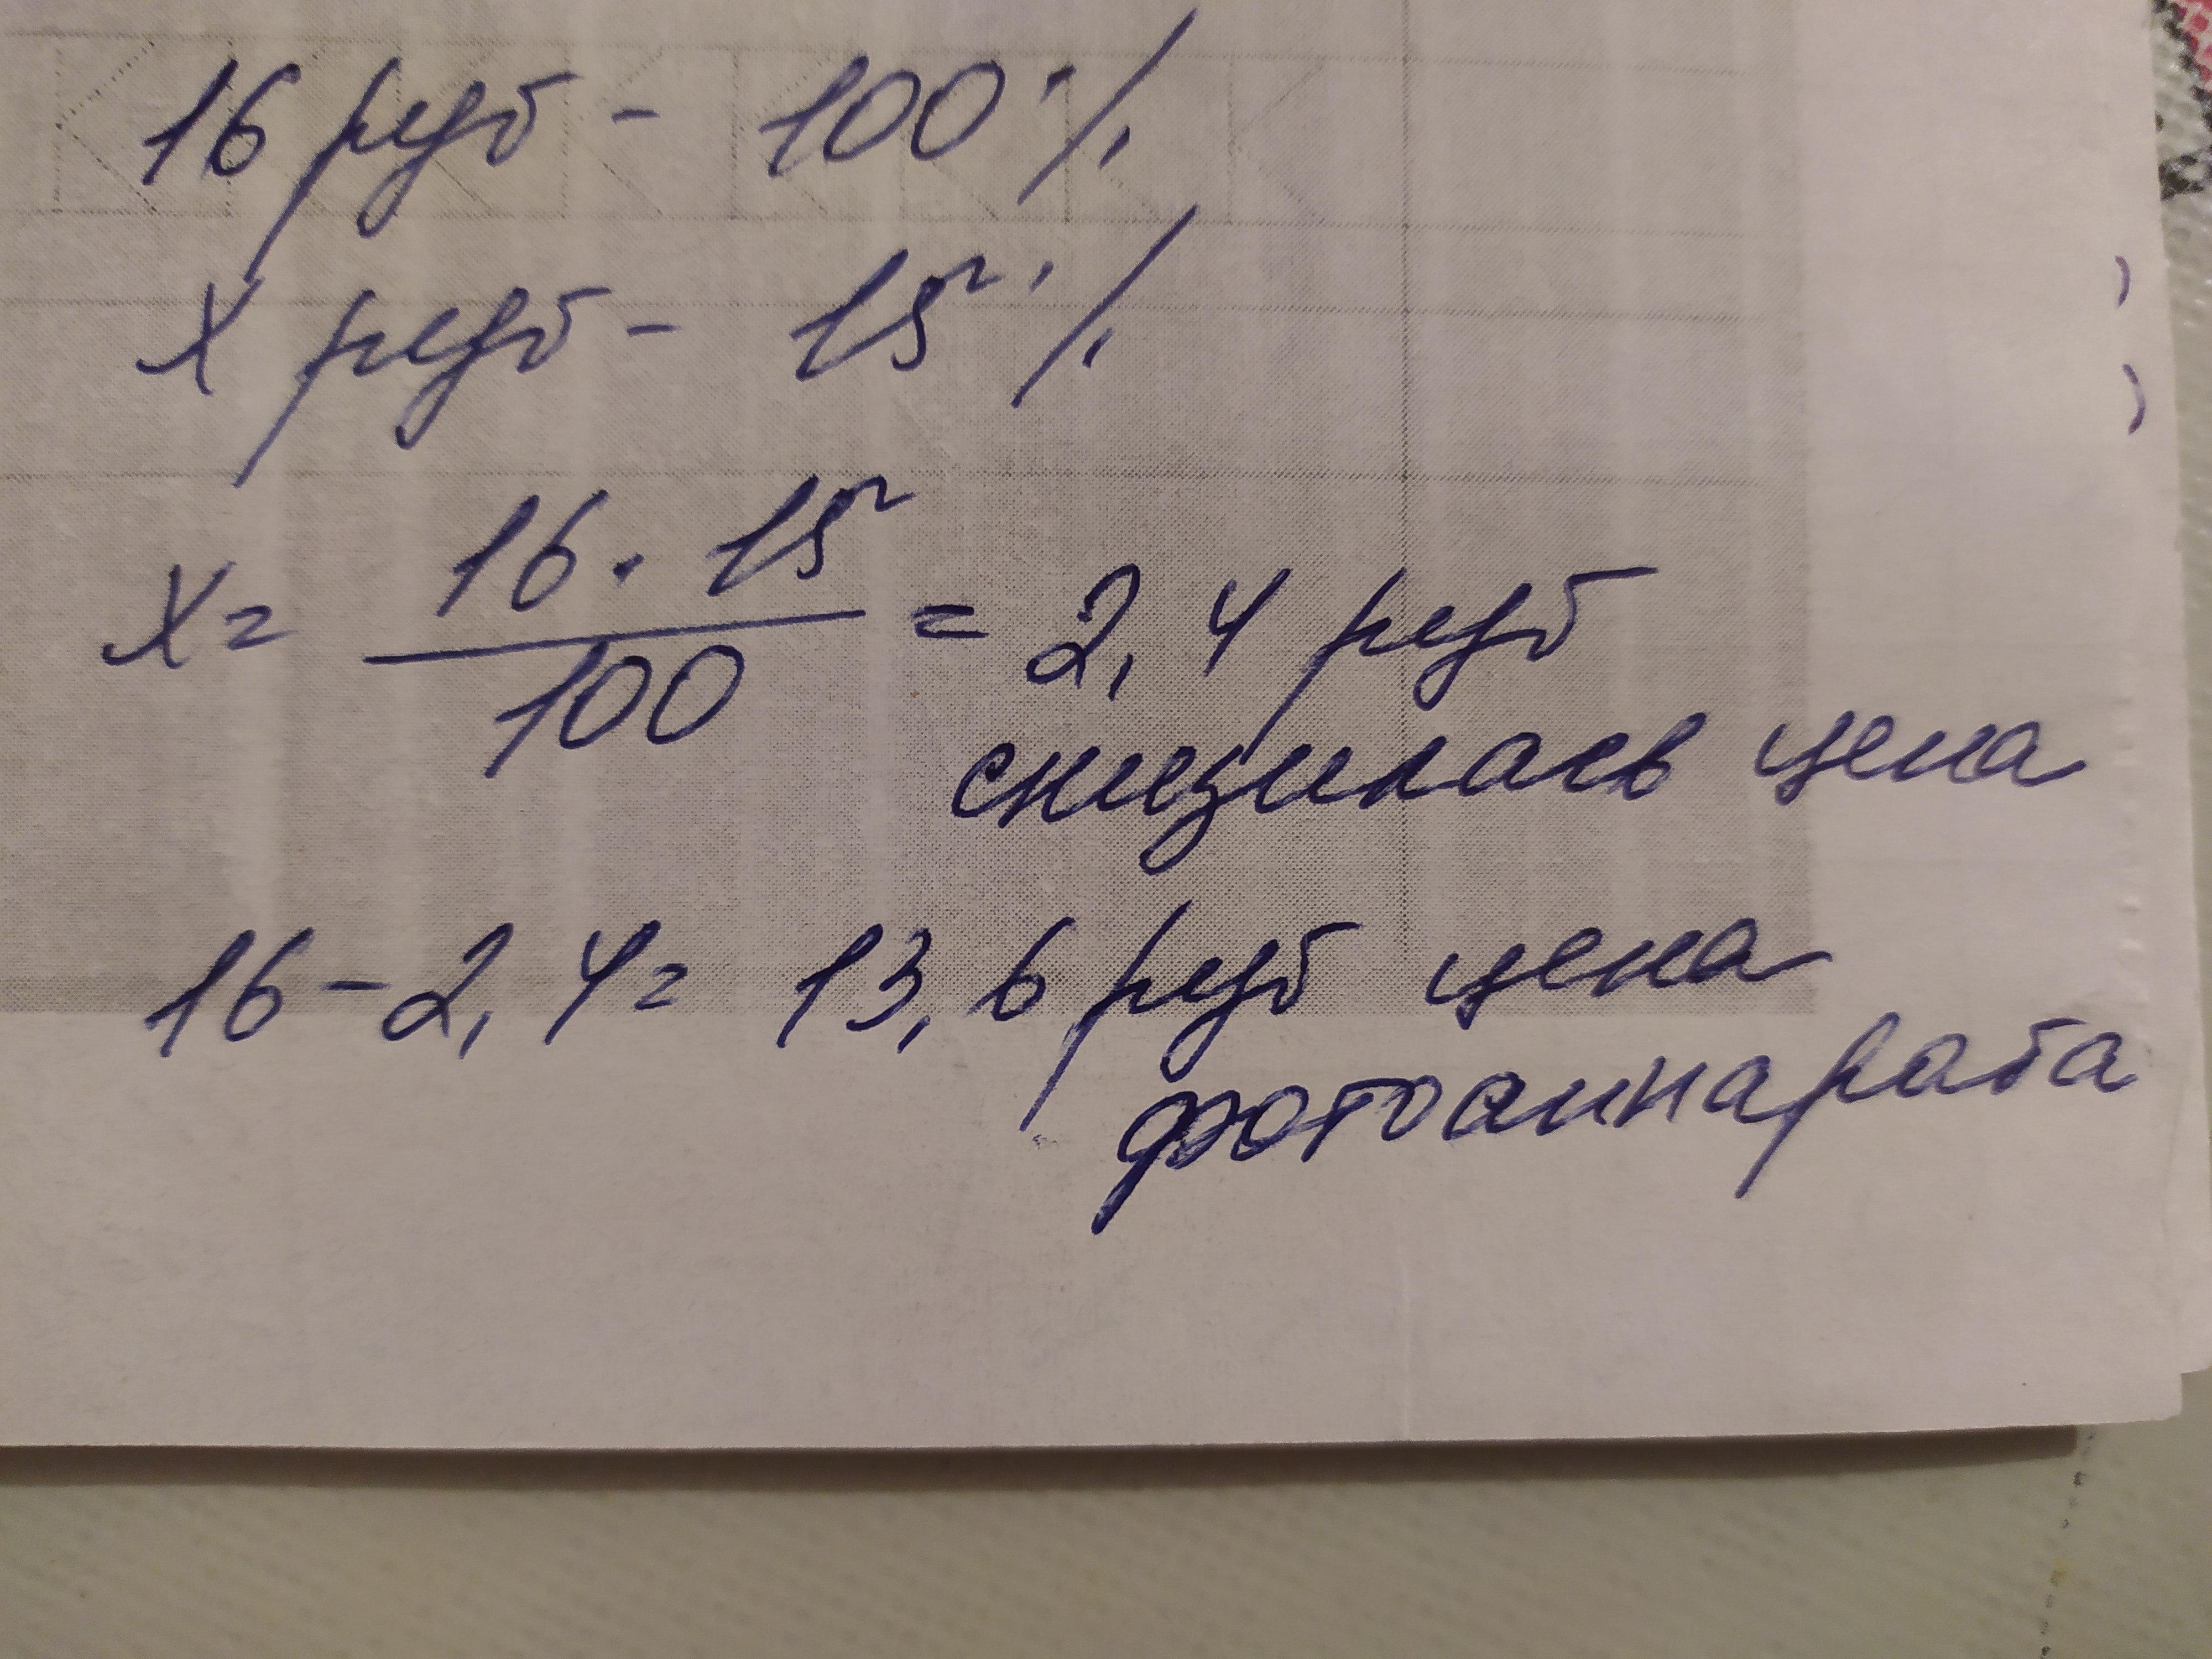 16 руб - 100 %
х руб - 15 %
х = 16 · 15 / 100 = 2,4 руб
снизилась цена
16 - 2,4 = 13,6 руб цена
фотоаппарата